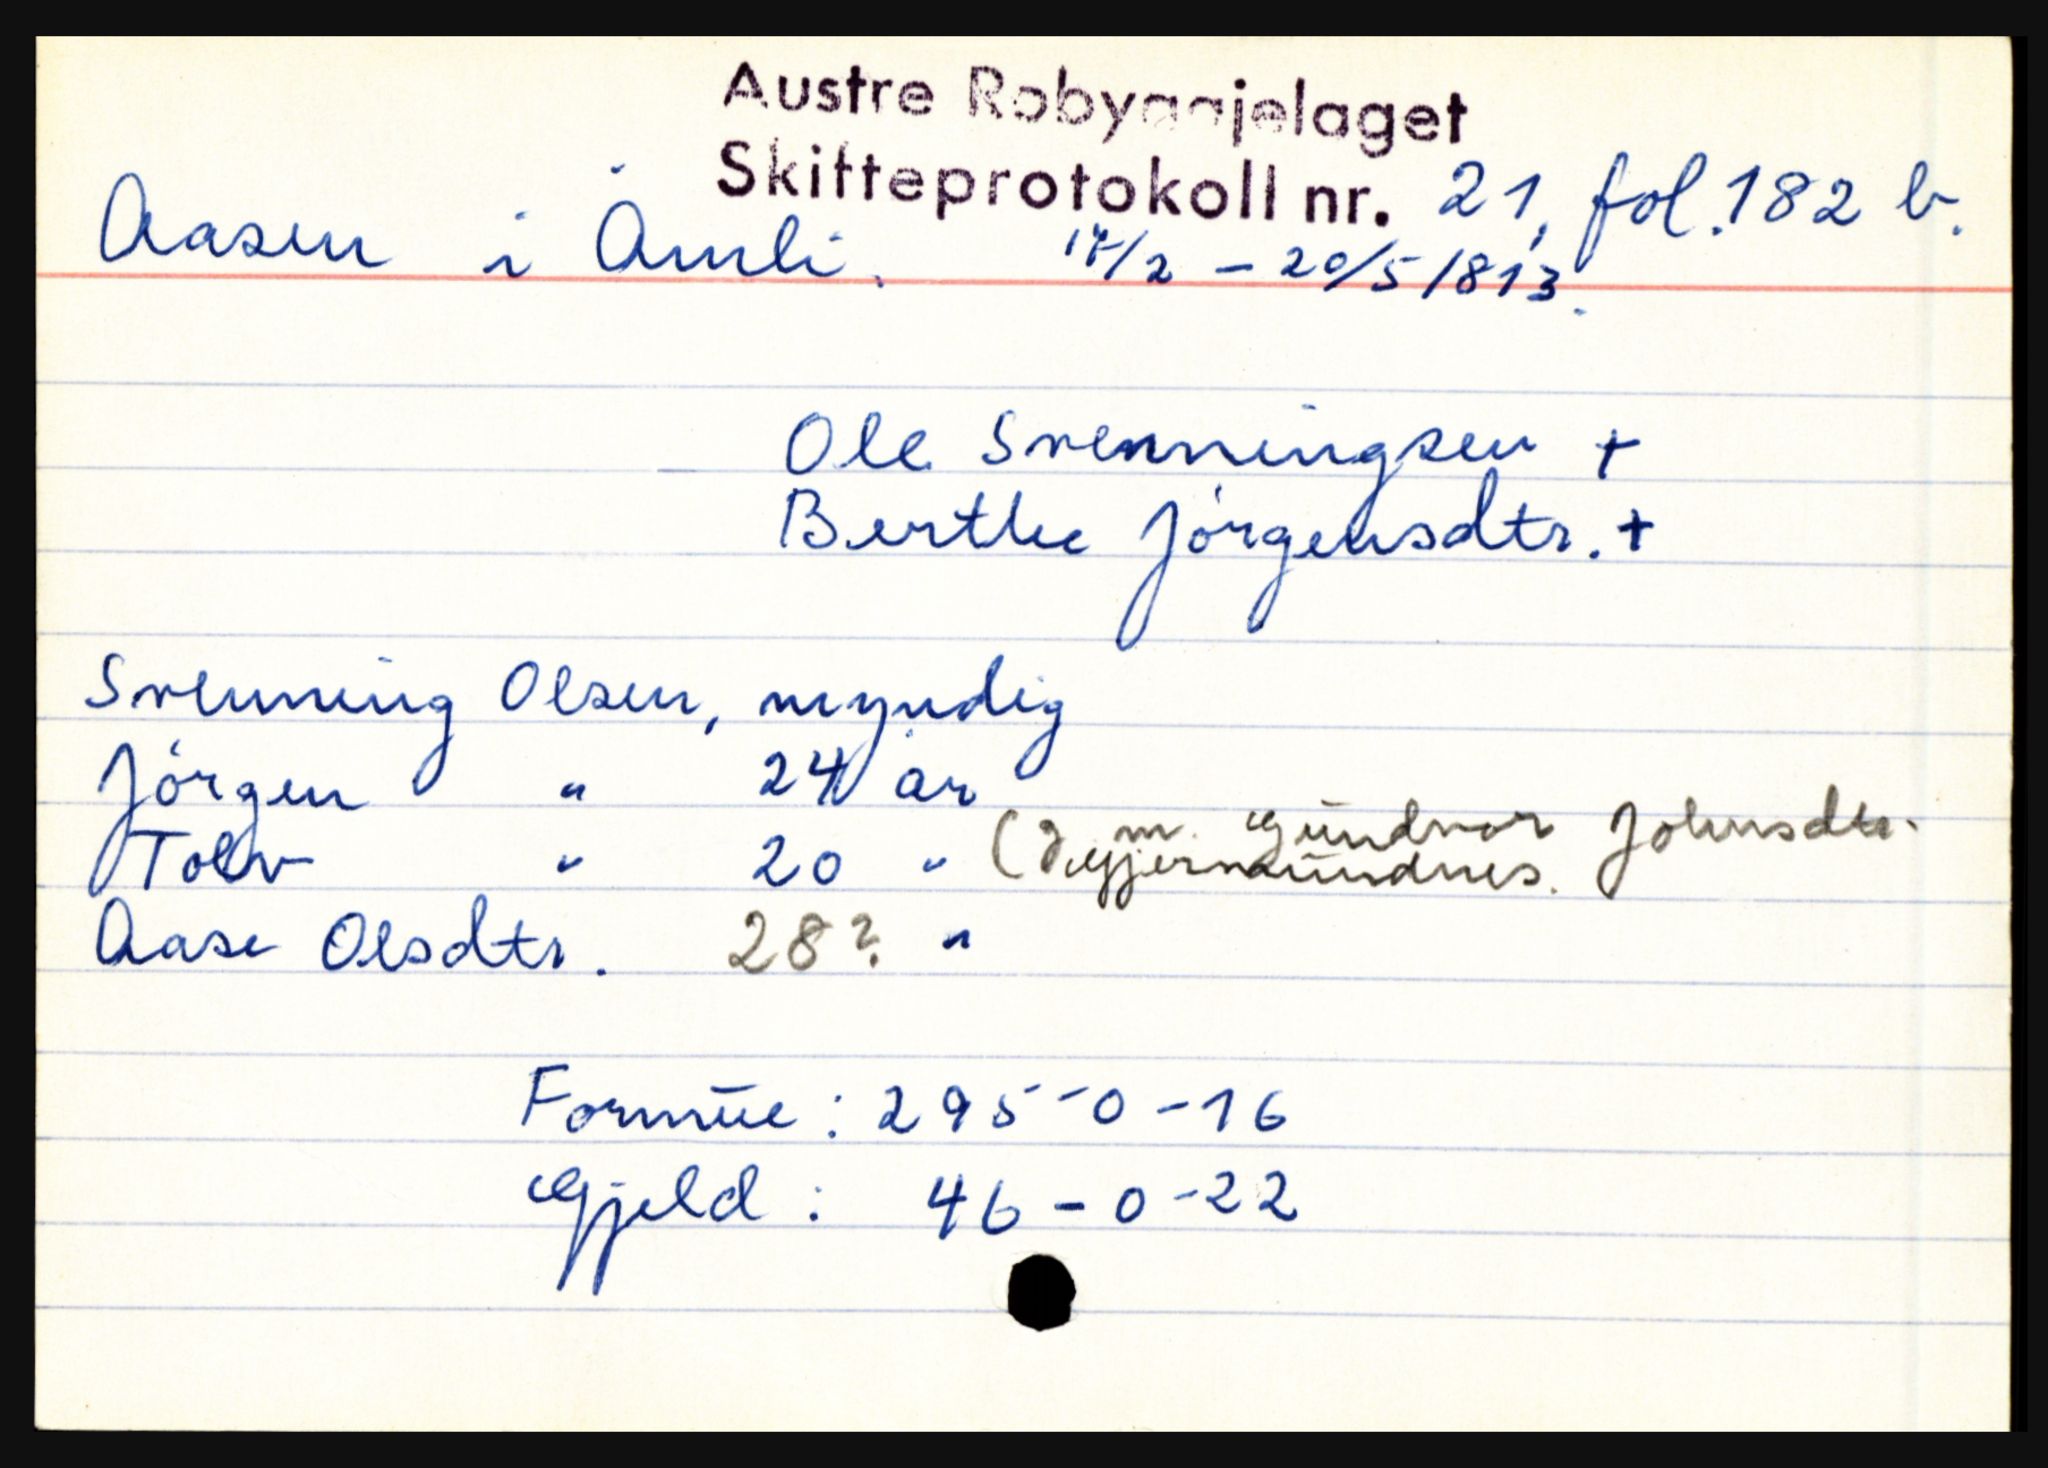 Austre Robyggjelaget
Skifteprotokoll nr. 21, fol. 182 b.
Aasen i Åmli. 14/2 - 20/5 1813.
Ole Svenningsen +
Berthe Jörgensdtr. +
Svenning Olsen, myndig
Jörgen " 24 år
Tolv " 20 " ( m. Gundvor Johnsdtr.
Gjermundnes.
Aase Olsdtr. 28? "
Formue : 295-0-16
Gjeld : 46-0-22